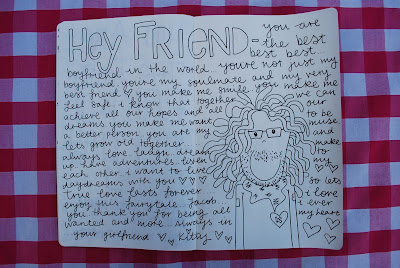 HEY FRIEND - you are
the best
best best
boyfriend in the world. you're not just my
boyfriend you're my soulmate and my very
best friend ♡ you make me smile you make me
feel safe. i know that together we can
achieve all our hopes and all our
dreams. you make me want to be
a better person. you are my muse.
lets grow old together and
always love laugh dream make
up have adventures. listen to
each other. i want to live my
daydreams with you ♡♡♡ so lets
True love lasts forever i love
enjoy this fairytale. Jacob i ever
you thank you for being all my heart
wanted and more. always in
your girlfriend ♡ Kitty ♡